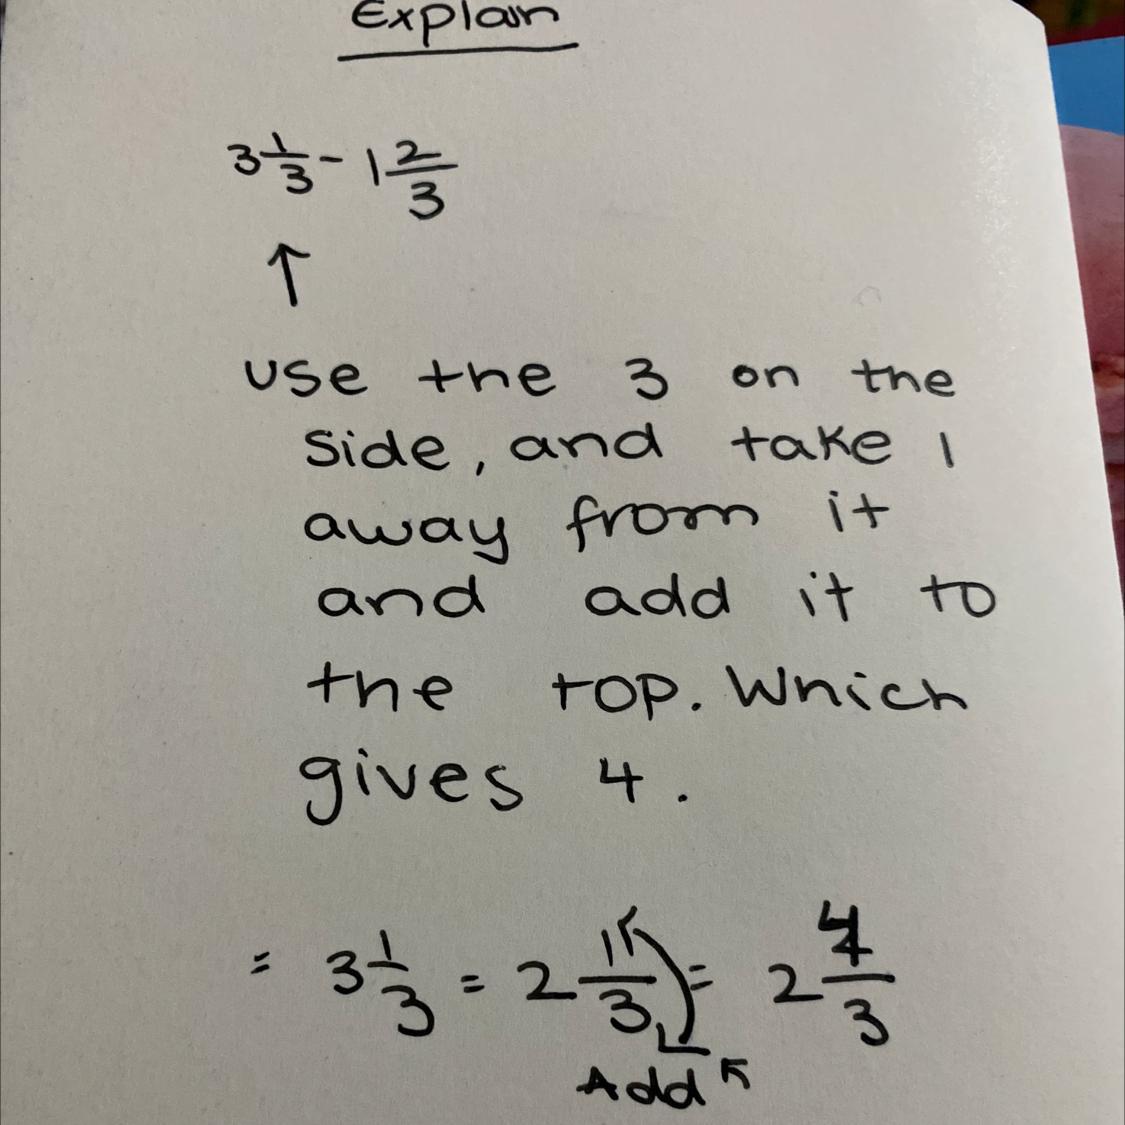 Explain
3 1/3 - 1 2/3
↑
use the 3 on the
side, and take 1
away from it
and add it to
the top. Which
gives 4.
= 3 1/3 = 2 1/3 = 2 4/3
Add